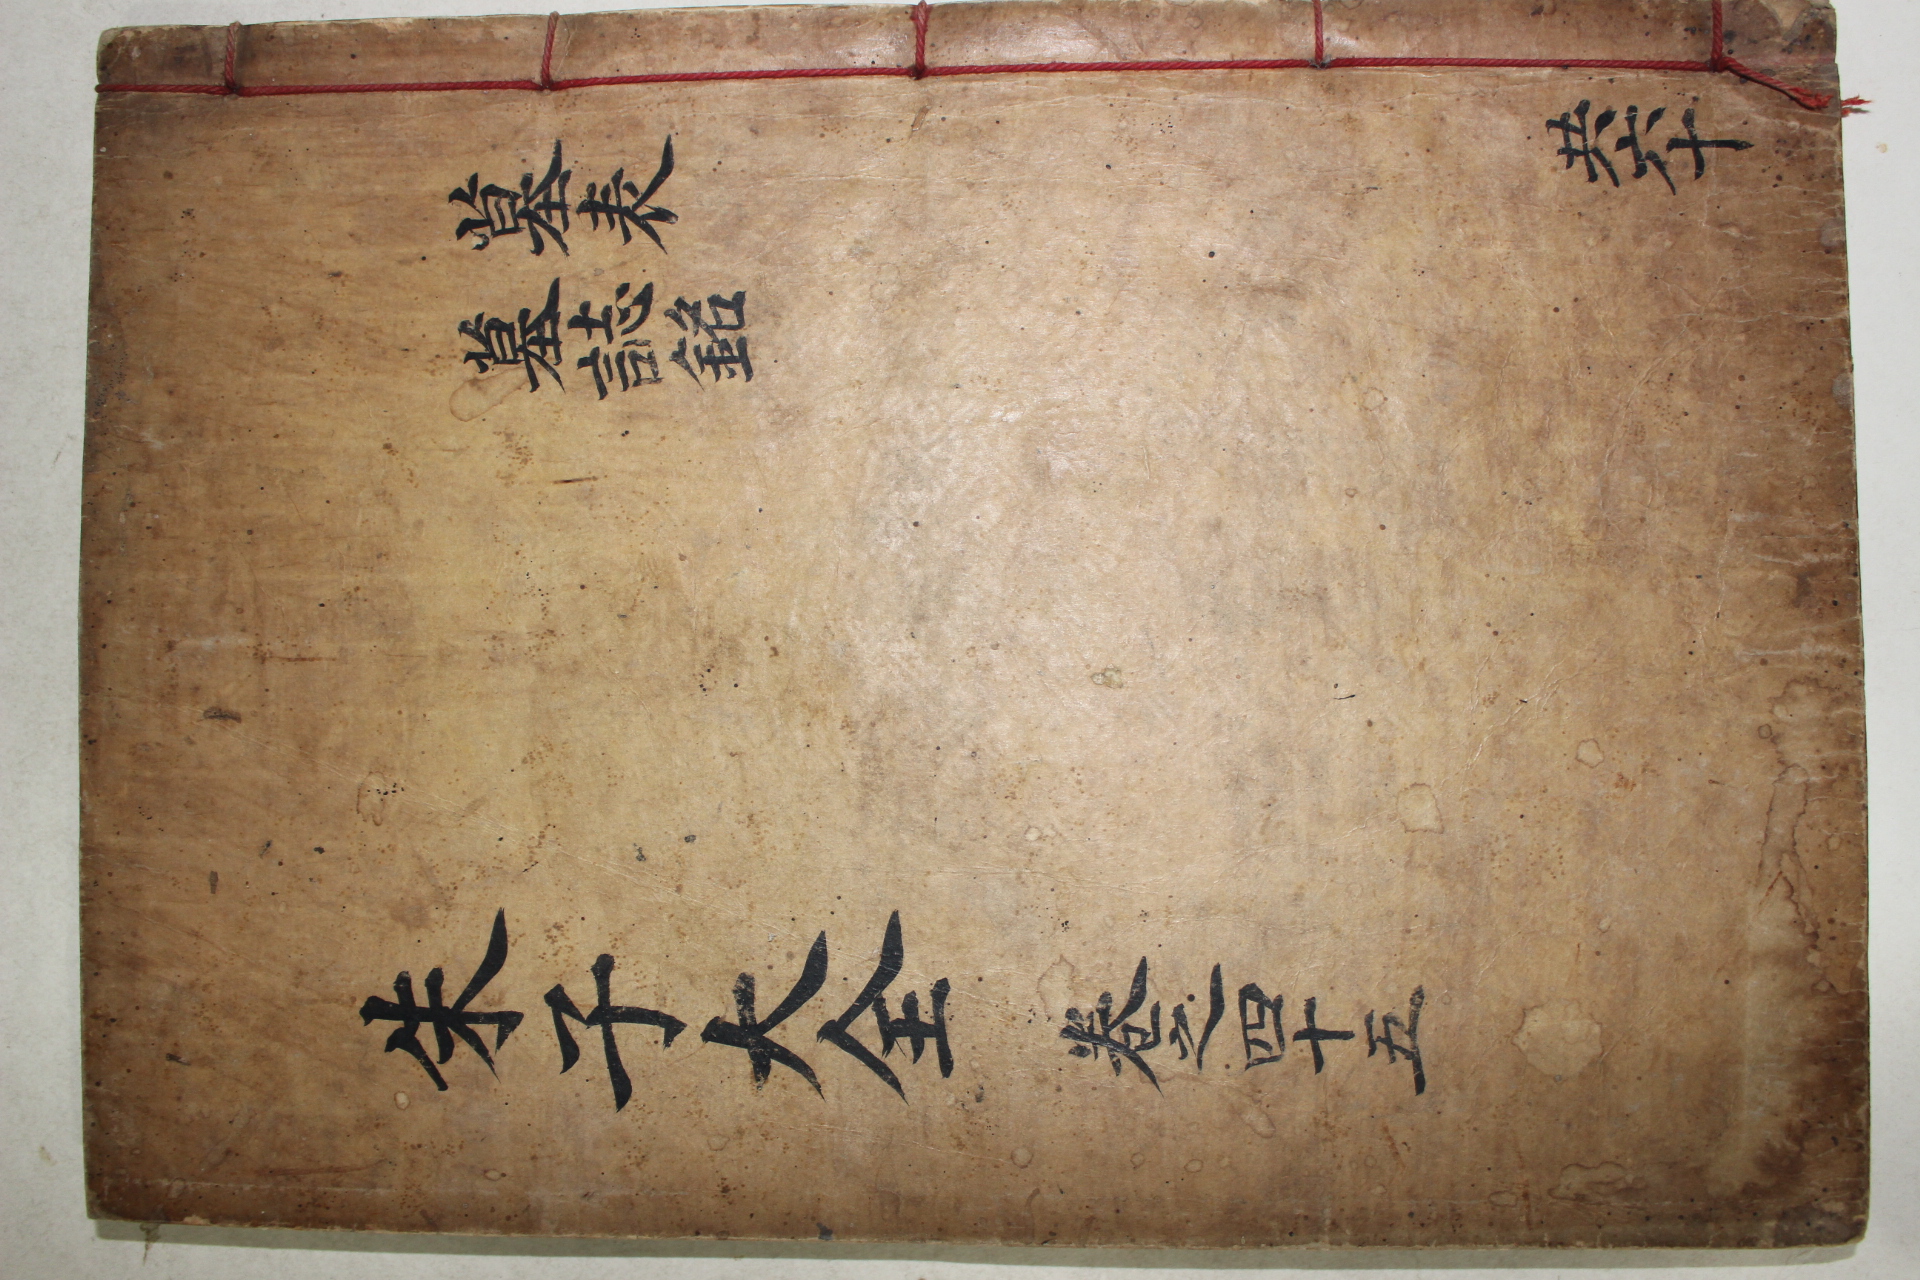 墓表
墓誌銘
朱子大全 卷之四十五
共六十